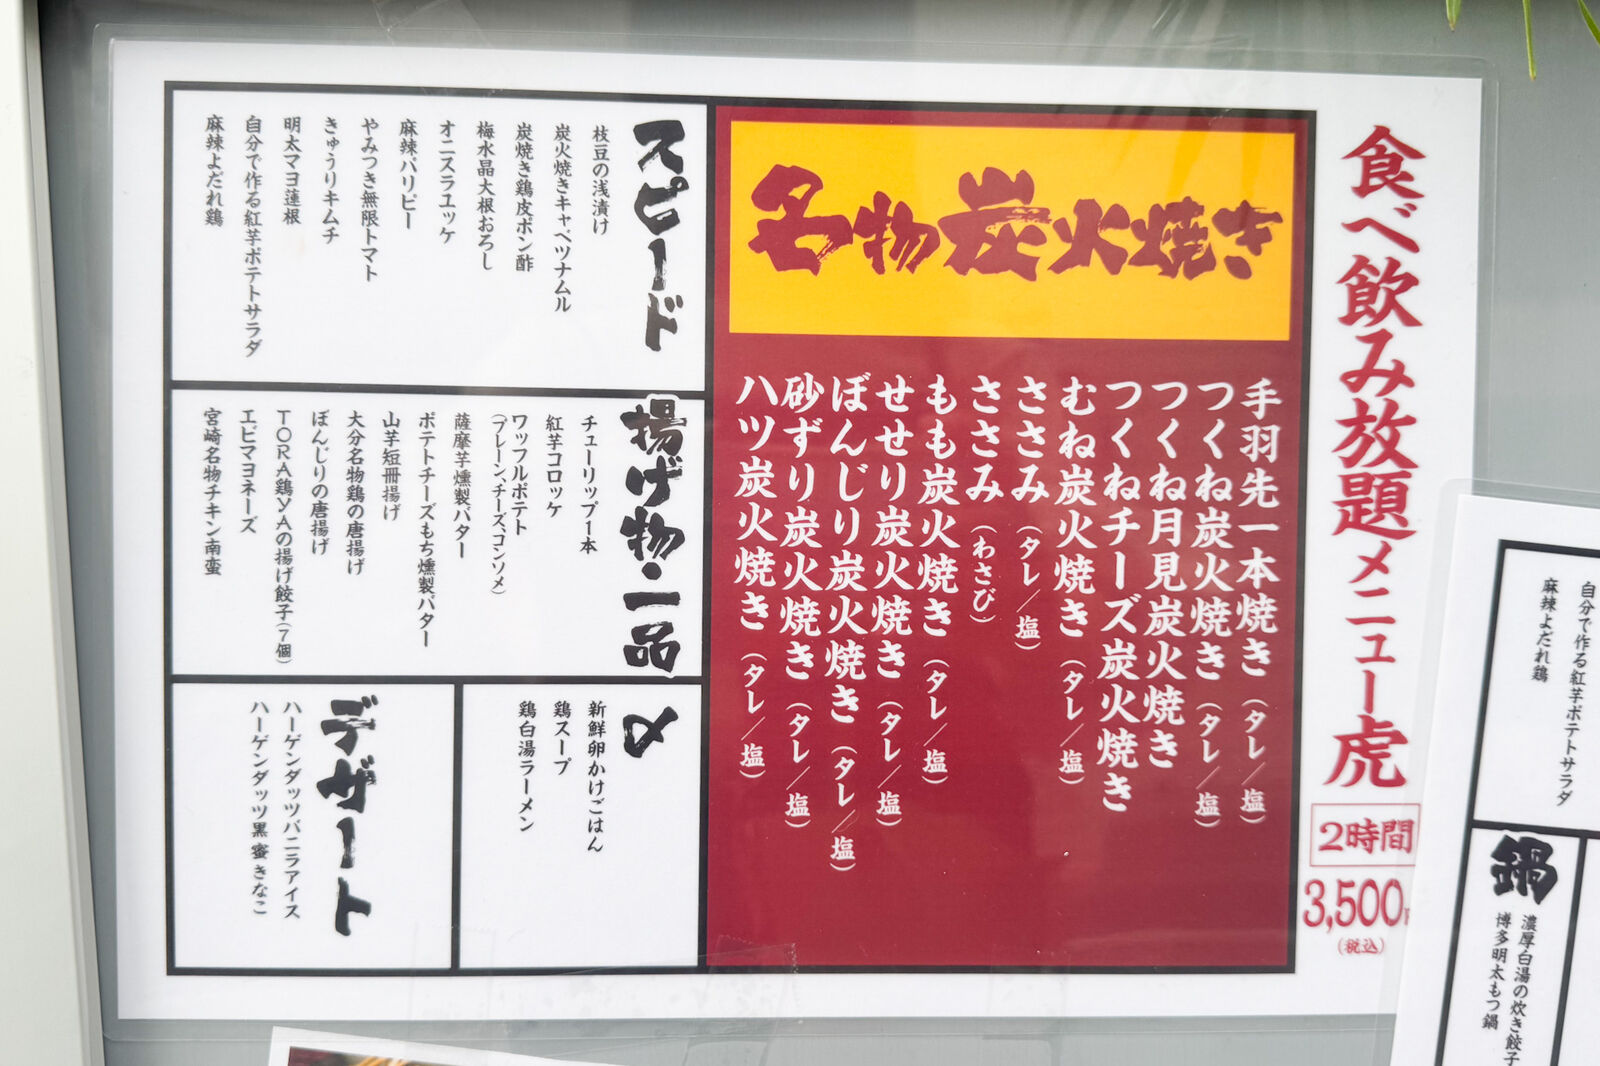 食べ飲み放題メニュー虎
2時間
3,500
(税込)
名物炭火焼き
手羽先一本焼き(タレ/塩)
つくね炭火焼き(タレ/塩)
つくね月見炭火焼き
つくねチーズ炭火焼き
むね炭火焼き(タレ/塩)
ささみ(タレ/塩)
ささみ(わさび)
もも炭火焼き(タレ/塩)
せせり炭火焼き(タレ/塩)
ぼんじり炭火焼き(タレ/塩)
砂ずり炭火焼き(タレ/塩)
ハツ炭火焼き(タレ/塩)
スピード
枝豆の浅漬け
炭火焼きキャベツナムル
炭焼き鶏皮ポン酢
梅水晶大根おろし
オニスラユッケ
麻辣パリピー
やみつき無限トマト
きゅうりキムチ
明太マヨ蓮根
自分で作る紅芋ポテトサラダ
麻辣よだれ鶏
揚げ物・一品
チューリップ1本
紅芋コロッケ
ワッフルポテト
(プレーン、チーズ、コンソメ)
薩摩芋燻製バター
ポテトチーズもち燻製バター
山芋短冊揚げ
大分名物鶏の唐揚げ
ぼんじりの唐揚げ
TORA鶏YAの揚げ餃子(7個)
エビマヨネーズ
宮崎名物チキン南蛮
〆
新鮮卵かけごはん
鶏スープ
鶏白湯ラーメン
デザート
ハーゲンダッツバニラアイス
ハーゲンダッツ黒蜜きなこ
自分で作る紅芋ポテトサラダ
麻辣よだれ鶏
鍋
濃厚白湯の炊き餃子
博多明太もつ鍋